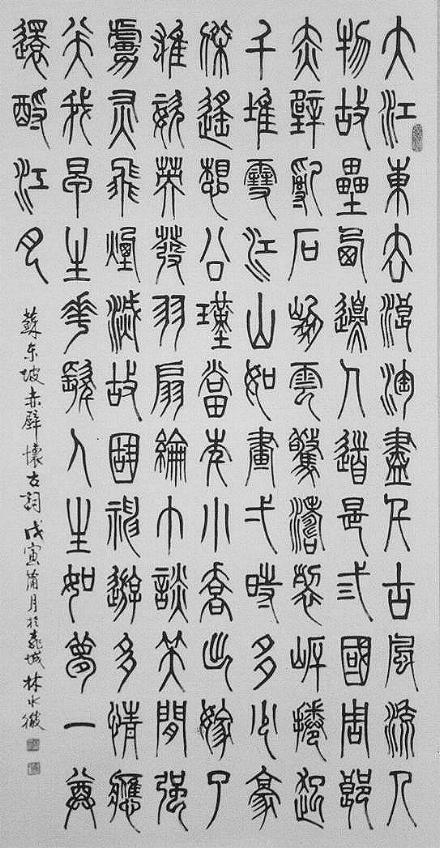 大江東去浪淘盡千古風流人
物故壘西邊人道是三國周郎
赤壁亂石崩雲驚濤裂岸捲起
千堆雪江山如畫一時多少豪
傑遙想公瑾當年小喬出嫁了
雄姿英發羽扇綸巾談笑間強
虜灰飛煙滅故國神遊多情應
笑我早生華髮人生如夢一尊
還酹江月
蘇东坡赤壁懷古詞戊寅蒲月於城林水